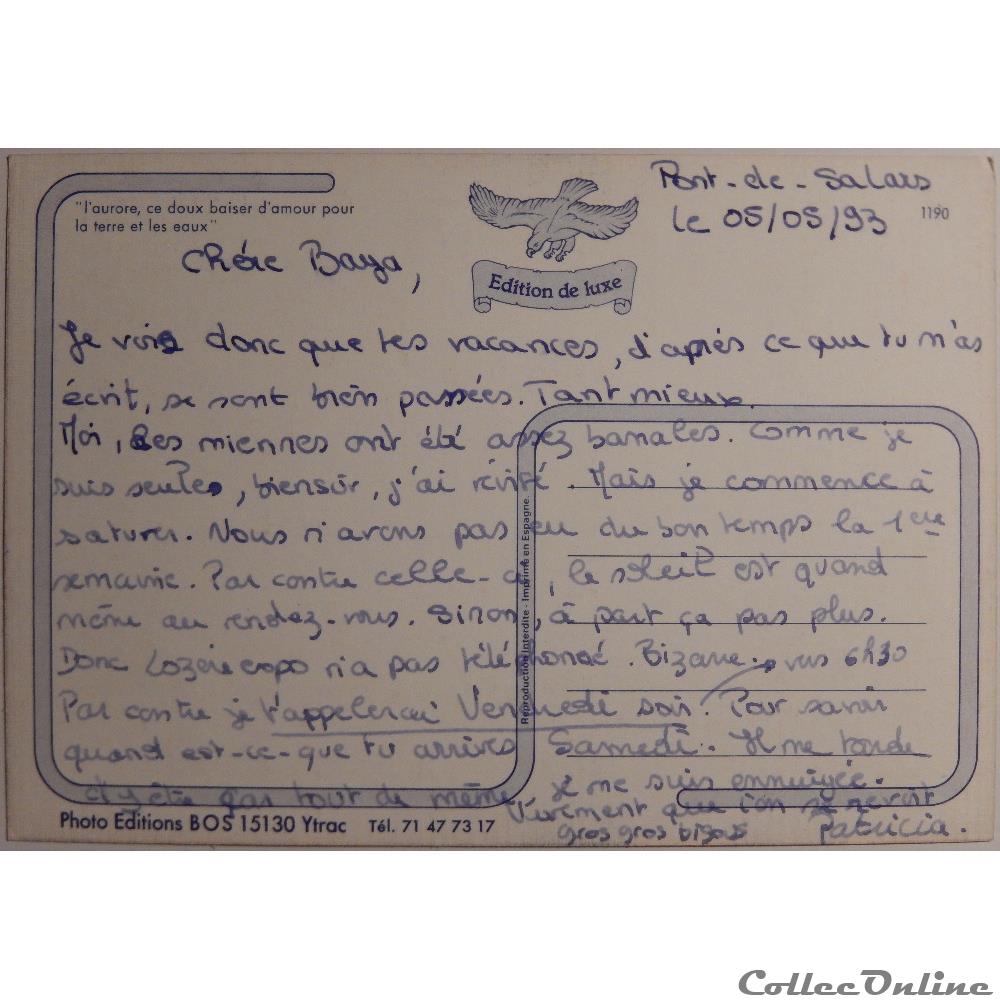 "l'aurore, ce doux baiser d'amour pour
la terre et les eaux"
Pont-de-Salars
le 05/05/93
1190
Edition de luxe
Chère Baya,
Je vois donc que tes vacances, d'après ce que tu m'as
écrit, se sont bien passées. Tant mieux.
Moi, les miennes ont été assez banales. Comme je
suis seule, biensûr, j'ai révisé. Mais je commence à
saturer. Nous n'avons pas eu du bon temps la 1ère
semaine. Par contre celle-ci, le soleil est quand
même au rendez-vous. Sinon, à part ça pas plus.
Donc Lozère expo n'a pas téléphoné. Bizarre. vers 6h30
Par contre je t'appelerai Vendredi soir. Pour savoir
quand est-ce-que tu arrives Samedi. Il me tarde
d'y être car tout de même je me suis ennuyée.
Vivement que l'on se revoit
gros gros bisous Patricia.
Reproduction Interdite - Imprimé en Espagne.
Photo Editions BOS 15130 Ytrac Tél. 71 47 73 17
CollecOnline